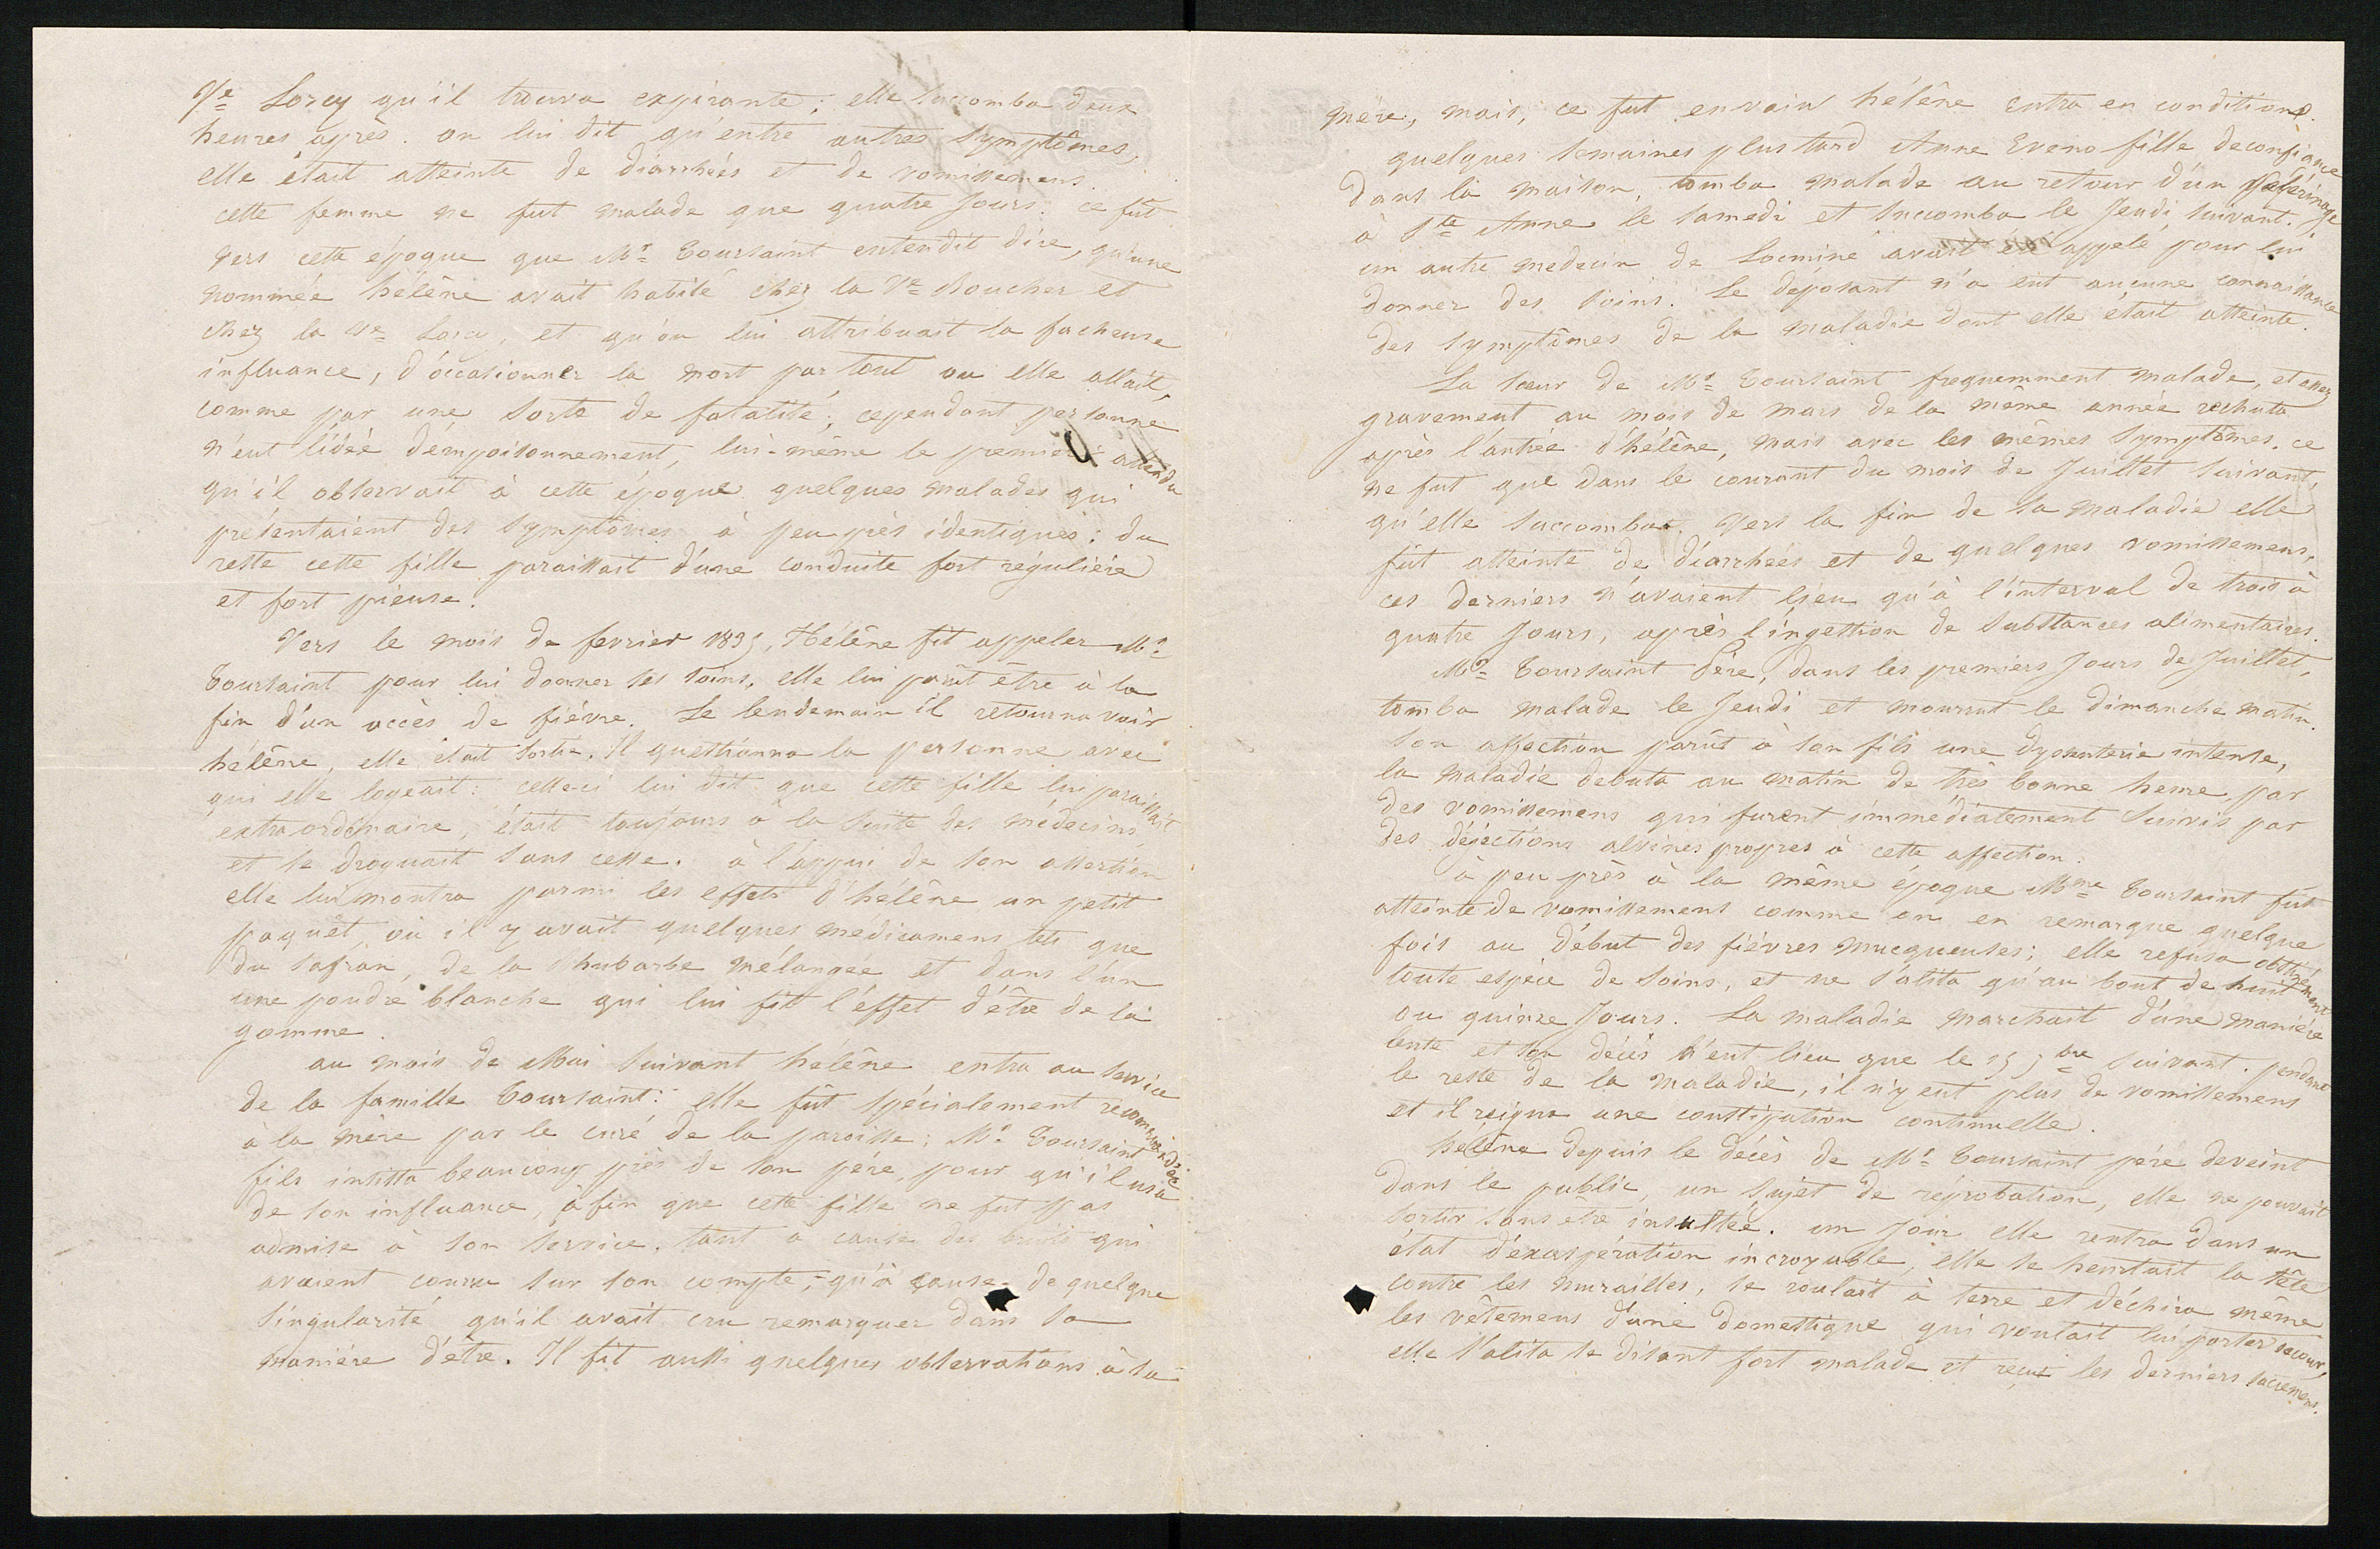 Ve Lorcy qu'il trouva expirante; elle succomba deux
heures après. on lui dit qu'entre autres symptômes,
elle était atteinte de diarrhées et de vomissemens.
cette femme ne fut malade que quatre jours. ce fut
vers cette époque que Mr Toursaint entendit dire, qu'une
nommée hélêne avait habité chez la Ve Boucher et
chez la Ve Lorcy, et qu'on lui attribuait la facheuse
influance, d'occasionner la mort partout ou elle allait,
comme par une sorte de fatalité; cependant personne
n'eut l'idée d'empoisonnement, lui-même le premier attendu
qu'il observait à cette époque quelques malades qui
présentaient des symptômes à peu près identiques: du
reste cette fille paraissait d'une conduite fort régulière
et fort pieuse.
Vers le mois de fevrier 1835, Hélêne fit appeler Mr
Toursaint pour lui donner ses soins, elle lui parût être à la
fin d'un accès de fiévre. Le lendemain il retourna voir
hélêne, elle était sortie. Il questionna la personne avec
qui elle logeait: celle-ci lui dit que cette fille lui paraissait
extraordinaire, était toujours à la suite des médecins
et se droguait sans cesse. à l'appui de son assertion
elle lui montra parmi les effets d'hélêne un petit
paquêt, où il y avait quelques medicamens tels que
du safran, de la rhubarbe mélangée et dans l'un
une poudre blanche qui lui fit l'éffet d'être de la
gomme.
au mois de Mai suivant hélêne entra au service
de la famille Toursaint: elle fût spécialement recommandée
à la mère par le curé de la paroisse; Mr Toursaint
fils insista beaucoup près de son pére, pour qu'il usa
de son influance, à fin que cette fille ne fut pas
admise à son service. tant à cause des bruits qui
avaient couru sur son compte, qu'à cause de quelque
singularité qu'il avait cru remarquer dans sa
maniére d'être. Il fit aussi quelques observations à sa
mére, mais, ce fut envain hélêne entra en condition.
quelques semaines plus tard Anne Eveno fille de confiance
dans la maison, tomba malade au retour d'un pélérinage
à Ste Anne le samedi et succomba le Jeudi suivant.
un autre medecin de Locminé avait été appelé pour lui
donner des soins. Le déposant n'a eut aucune connaissance
des symptômes de la maladie dont elle était atteinte.
La sœur de Mr Toursaint frequemment malade, et assez
gravement au mois de mars de la même année rechuta
après l'antrée d'hélêne, mais avec les mêmes symptômes. ce
ne fut que dans le courant du mois de Juillet suivant,
qu'elle succomba. Vers la fin de sa maladie elle
fût atteinte de diarrhées et de quelques vomissemens,
ces derniers n'avaient lieu qu'à l'interval de trois à
quatre jours, après l'ingestion de substances alimentaires.
Mr Toursaint Père, dans les premiers jours de Juillet,
tomba malade le Jeudi et mourrut le dimanche matin.
son affection parût à son fils une dyssenterie intense,
la maladie debuta au matin de très bonne heure, par
des vomissemens qui furent immédiatement suivis par
des déjections alvines propres à cette affection.
à peu près à la même époque Mme Toursaint fut
atteinte de vomissemens comme on en remarque quelque
fois au début des fiévres mucqueuses; elle refusa obstinément
toute espèce de soins, et ne s'alita qu'au bout de huit
ou quinze jours. La maladie marchait d'une maniére
lente et son décès n'eut lieu que le suivant. pendant
le reste de la maladie, il n'y eut plus de vomissemens
et il reigna une constipation continuelle.
hélêne depuis le décès de Mr Toursaint pére deveint
dans le public, un sujet de réprobation, elle ne pouvait
sortir sans être insultée. un jour elle rentra dans un
état d'éxaspération incroyable, elle se heurtait la tête
contre les murailles, se roulait à terre et déchira même
les vêtemens d'une domestique qui voulait lui porter secours,
elle s'alita se disant fort malade et reçut les derniers sacremens.